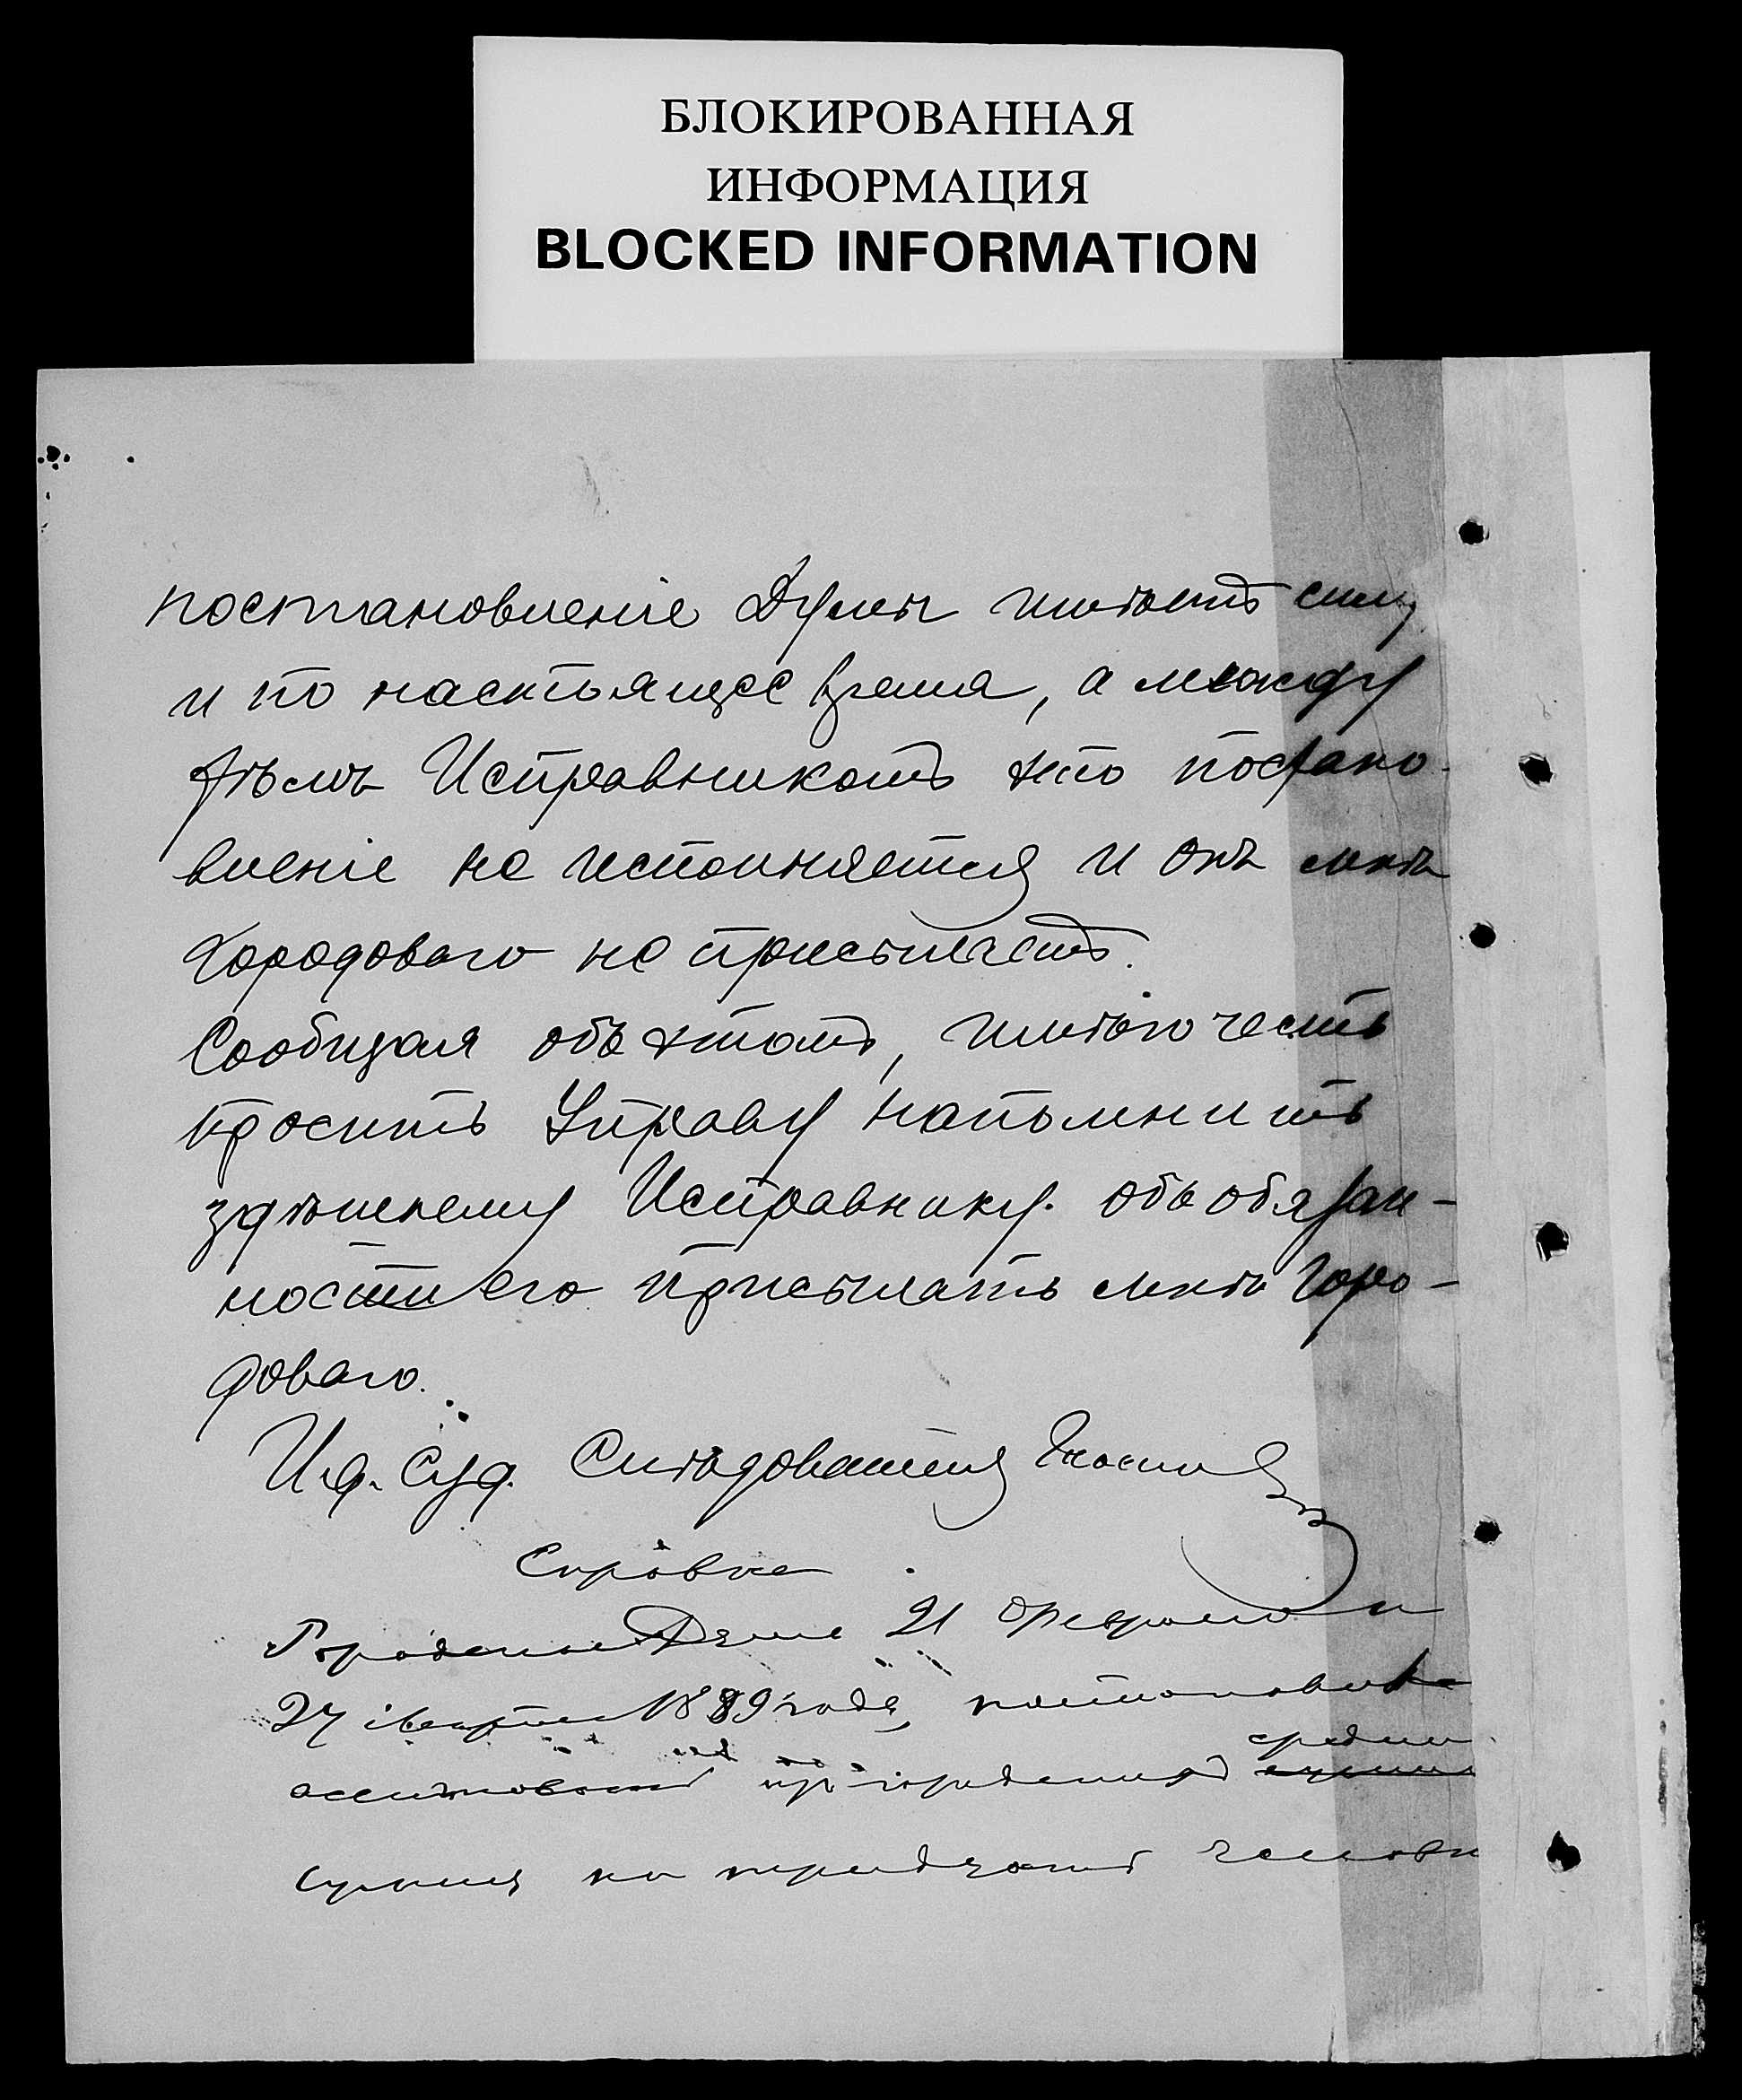 БЛОКИРОВАННАЯ
ИНФОРМАЦИЯ
BLOCKED INFORMATION
постановленіе Думы имѣетъ силу
и по настоящее время, а между
тѣмъ Исправникомъ это постано-
вленіе не исполняется и онъ мнѣ
городоваго не присылаетъ.
Сообщая объ этомъ, имѣю честь
просить Управу напомнить
здѣшнему Исправнику объ обязан-
ности его присылать мнѣ горо-
доваго.
И.д. Суд. Слѣдователя
Справка
Городская Дума 21 Февраля и
27 Марта 1889 года, постановила
ассигновать
средин
на человѣк